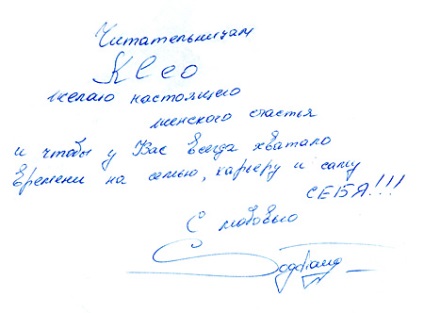 Читательницам
Клео
желаю настоящего
женского счастья
и чтобы у Вас всегда хватало
времени на семью, карьеру и саму
СЕБЯ!!!
С любовью